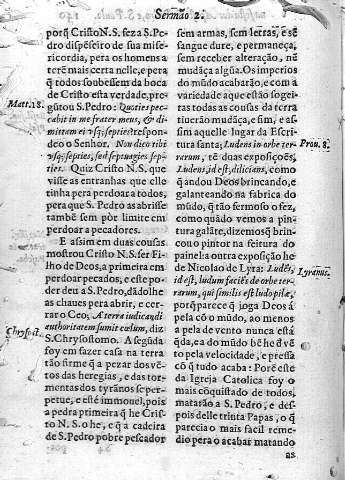 Sermão 2.
porq̃ Cristo N. S. fez a S. Pedro dispẽseiro de sua misericordia, pera os homens a
terẽ mais certa nelle, e pera
q̃ todos soubessem da boca
de Cristo esta verdade, preg̃utou S. Pedro: Quoties peccabit in me frater meus, & dimittam ei vsq; septies? respondeo o Senhor. Non dico tibi
vsq; septies, sed septuagies septies. Quiz Cristo N. S. que
visse as entranhas que elle
tinha pera perdoar a todos,
pera que S. Pedro as abrisse
tambẽ sem pòr limite em
perdoar a pecadores.
E assim em duas cousas
mostrou Cristo N. S. ser Filho de Deos, a primeira em
perdoar pecados; e este poder deu a S. Pedro, dãdolhe
as chaues pera abrir, e cerrar o Ceo; A terra iudicandi
authoritatem sumit cœlum, diz
S. Chrysostomo. A segũda
foy em fazer casa na terra
tão firme q̃ a pezar dos vẽtos das heregias, e das tormentas dos tyrãnos se perpetue, e esté immouel; pois
a pedra primeira q̃ he Cristo N. S. o he, e q̃ a cadeira
de S. Pedro pobre pescador
Matt. 18.
Chrysost.
sem armas, sem letras, e sẽ
sangue dure, e permaneça,
sem receber alteração, nẽ
mudãça algũa. Os imperios
do mũdo acabarão, e com a
variedade a que estão sogeitas todas as cousas da terra
tiuerão mudãça, e sim, e assim aquelle lugar da Escritura santa; Ludens in orbe terrarum, tẽ duas exposições,
Ludens, id est, deliciens, como
q̃ andou Deos brincando, e
galanteando na fabrica do
mũdo, q̃ tão fermoso o fez,
como quãdo vemos a pintura galãte, dizemos q̃ brincou o pintor na feitura do
painel: a outra exposição he
de Nicolao de Lyra: Ludẽs,
id est, ludum facíẽs de orbe terrarum, qui similis est ludo pilæ,
porq̃ parece q̃ joga Deos á
pela cõ o mũdo, ao menos
a pela de vento nunca está
q̃da, e a do mũdo bẽ he d vẽto pela velocidade, e pressa
cõ q̃ tudo acaba: Porẽ este
da Igreja Catolica foy o
mais cõquistado de todos,
matarão a S. Pedro, e despois delle trinta Papas, o q̃
parecia o mais facil remedio pera o acabar matando
Prou. 8.
Lyranus.
as